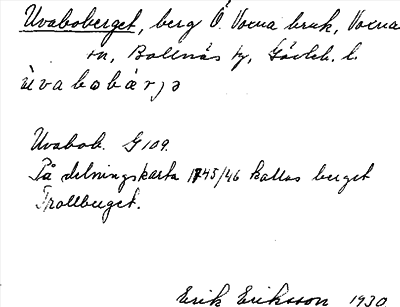 Uvaboberget, berg Ö. Voxna bruk, Voxna
sn, Bollnäs tg, Gävleb. l.
ùvabobærjə
Uvabob. G 109.
På delningskarta 1745/46 kallas berget
Trollberget.
Erik Eriksson 1930